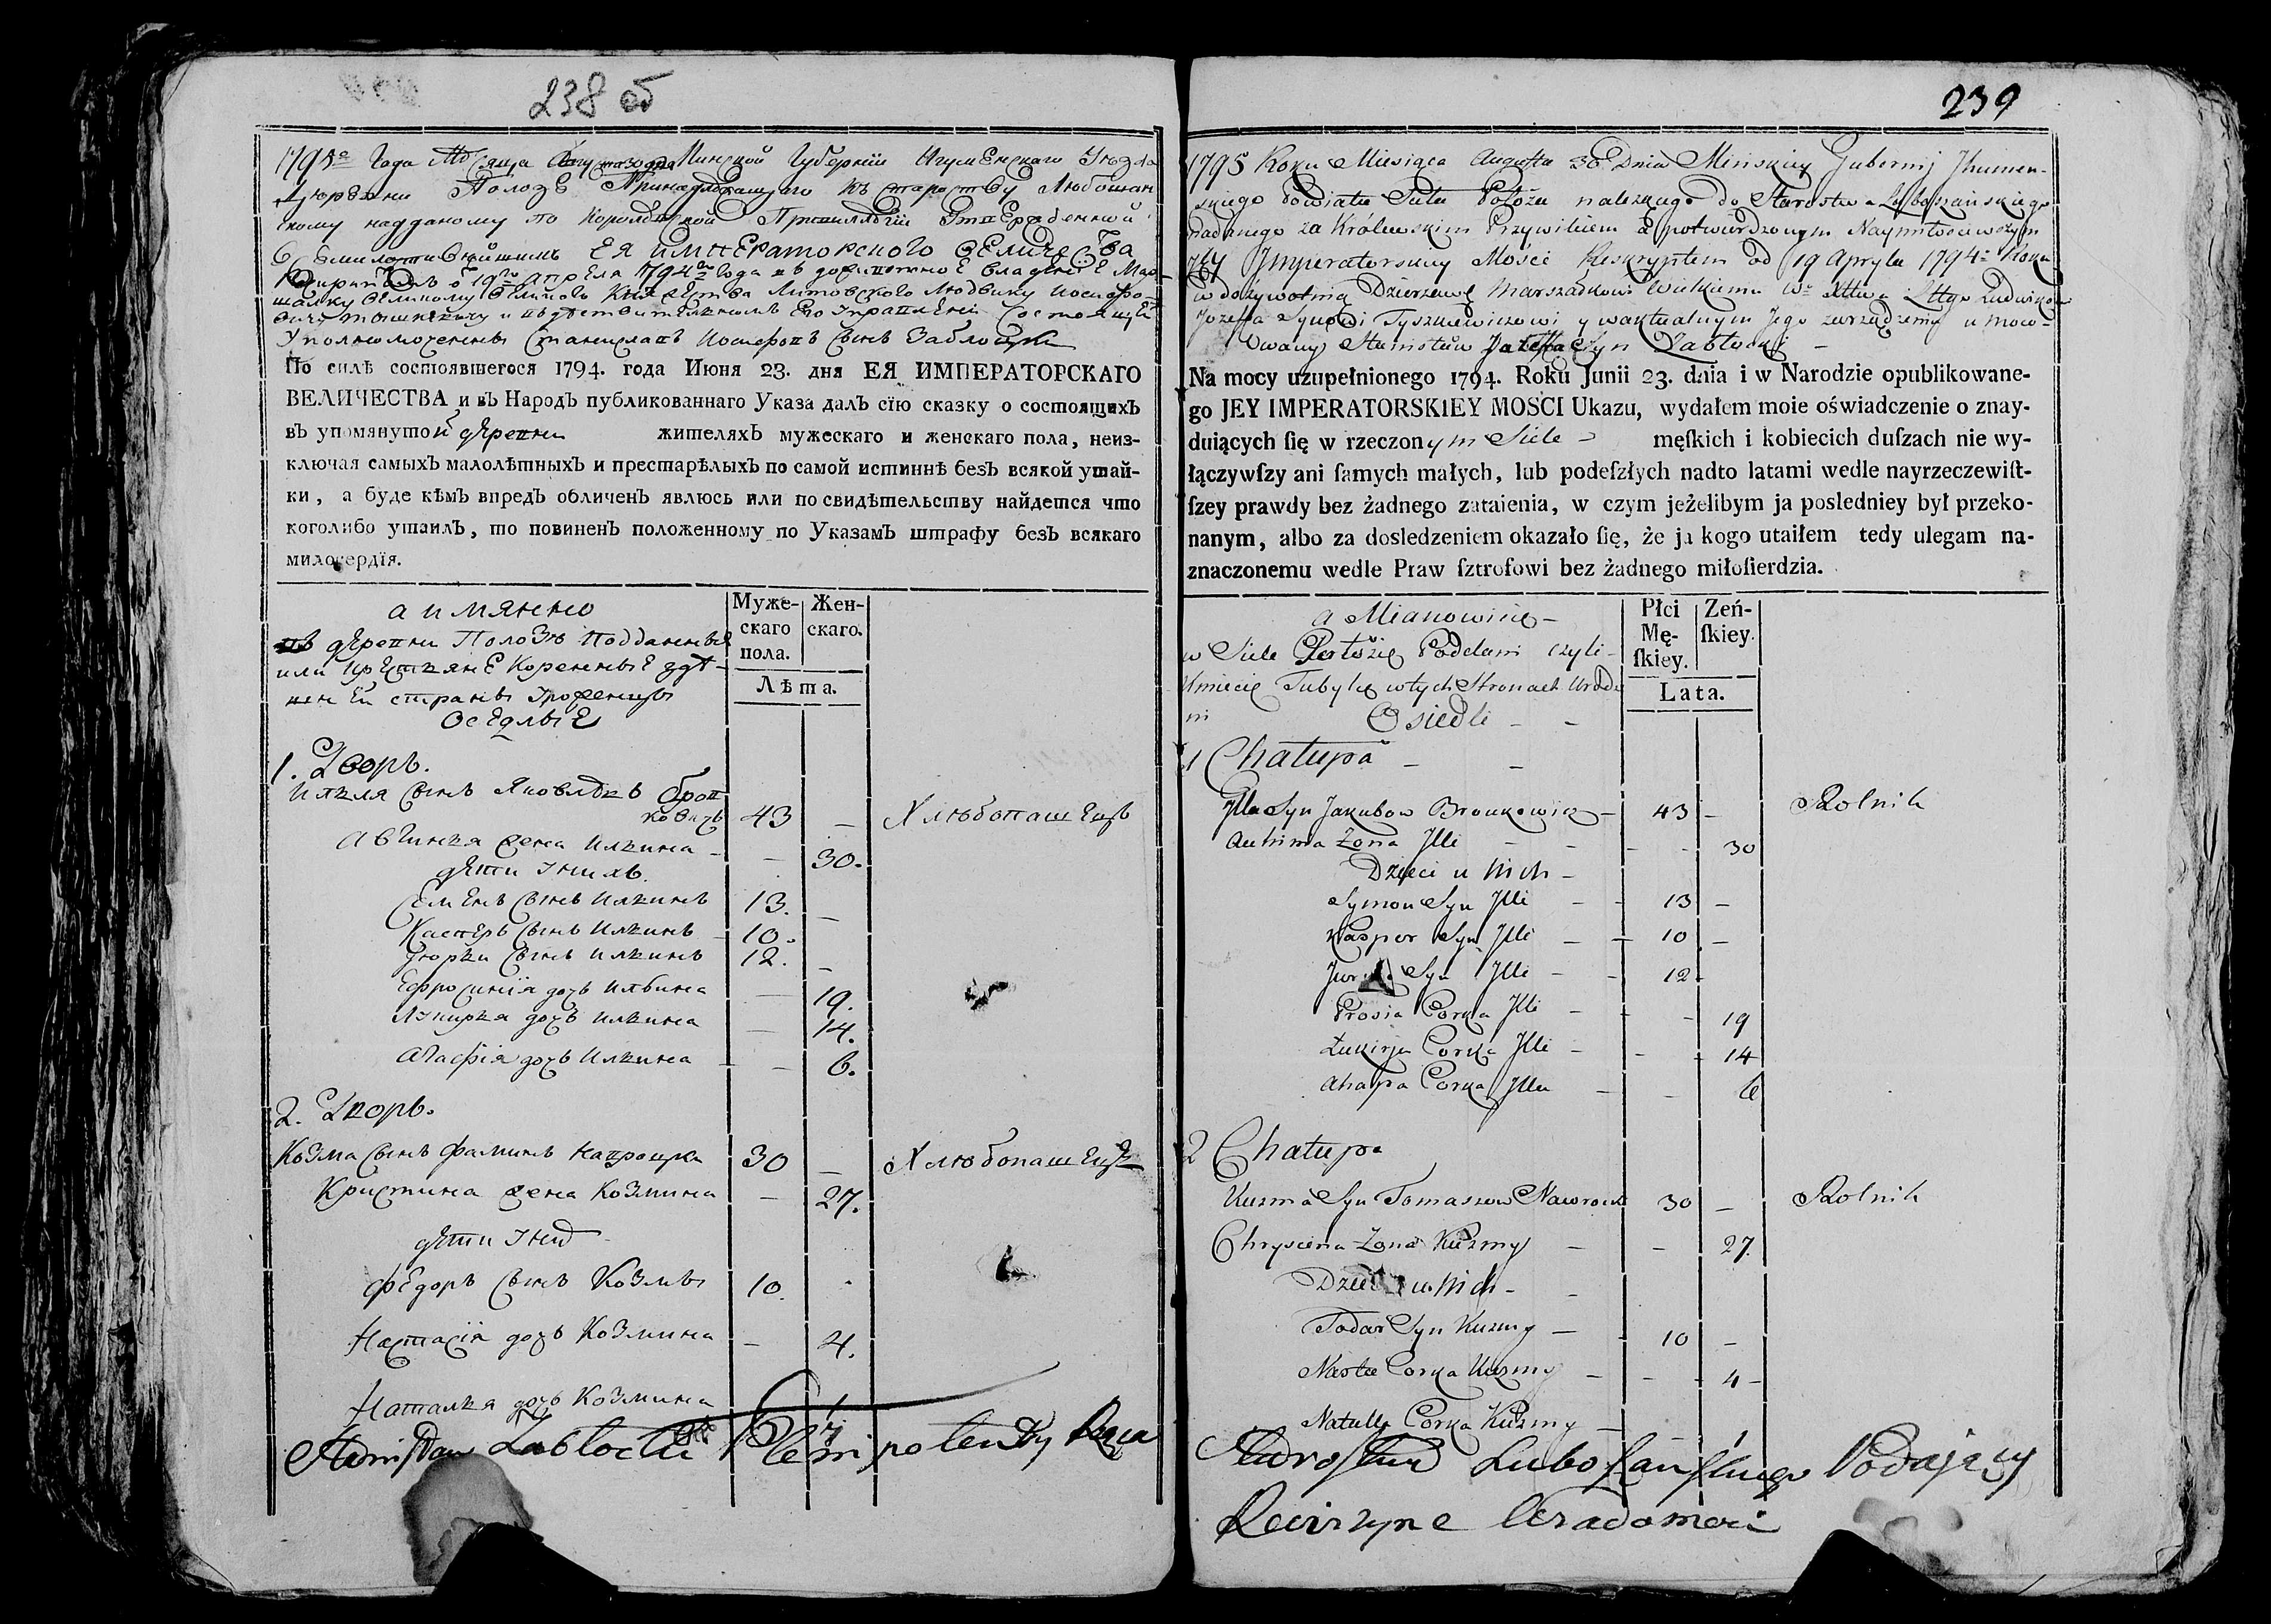 238 об
1795го Года Мѣсяца Августа 30 дня Минской Губернїи Игуменскаго Уезда
Деревни Полозъ Принадлежащаго къ староству Любошан
скому надданому по Королевской Привиллегїи Утвержденной
ЕЯ ИМПЕРАТОРСКОГО ВЕЛИЧЕСТВА
19го апреля 1794го Года въ доживотное владение Мар-
шалку Великому Великого Княжества Литовского Людвику Иосифо-
вичу Тышкевичу и въ действительномъ Его управленїи состоящей
Уполномоченны Станиславъ Иосифовъ Сынъ Заблоцки
По силѣ состоявшегося 1794. года Июня 23. дня ЕЯ ИМПЕРАТОРСКАГО
ВЕЛИЧЕСТВА и въ Народъ публикованнаго Указа далъ сїю сказку о состоящихъ
въ упомянутой деревни жителяхъ мужескаго и женскаго пола, неиз-
ключая самыхъ малолѣтныхъ и престарѣлыхъ по самой истиннѣ безъ всякой утай-
ки, а буде кѣмъ впредъ обличенъ явлюсь или по свидѣтельству найдется что
коголибо утаилъ, то повиненъ положенному по Указамъ штрафу безъ всякаго
милосердїя.
а имянно
въ деревни Полозе Подданные
или крестяне Коренные здѣ-
шней страны Уроженцы
Оседлые
Муже-
скаго
пола.
Жен-
скаго.
Лѣта.
1. Дворъ.
Илля Сынъ Яковлевъ Бров
ковичъ 43 – Хлюбопашецъ
Авгинья жена Ильина – – 30.
дети у нихъ
Семенъ Сынъ Ильинъ 13. –
Касперъ Сынъ Ильинъ 10. –
Юрки Сынъ Ильинъ 12. –
Ефросинїя дочь Ильина – 19.
Лукирья дочь Ильина – 14.
Агафїя дочь Ильина – 6.
2. Дворъ.
Козма Сынъ Фаминъ Навроцки 30 – Хлюбопашецъ
Кристина жена Козмина – 27.
дети у нихъ
Федоръ Сынъ Козмы 10.
Настасїя дочь Козмина – 4.
Наталья дочь Козмина 1
Stanisław Zabłocki Plenipotent
239
1795 Roku Miesiąca Augusta 30 Dnia Mińskiey Gubernij Jhumen-
skiego Powiatu Sieła Położu należącego do Starostwa Luboszańskiego
nadanego za Królewskim Przywilejem a potwierdzonym Naymiłościwszym
Jey Jmperatorskiey Mości Reskryptem od 19 Apryla 1794. Roku
w dożywotnią Dzierżawę Marszałkowi Wielkiemu Wo Xttwa Lttgo Ludwikow
Jozefa Synowi Tyszkiewiczowi y w aktualnym Jego zarządzeniu umoco-
wany Stanisław Jozefa Syn Zabłocki –
Na mocy uzupełnionego 1794. Roku Junii 23. dnia i w Narodzie opublikowane-
go JEY IMPERATORSKIEY MOSCI Ukazu, wydałem moie oświadczenie o znay-
duiących ſię w rzeczonym Siele męſkich i kobiecich duſzach nie wy-
łączywſzy ani ſamych małych, lub podeſzłych nadto latami wedle nayrzeczewiſt-
ſzey prawdy bez żadnego zataienia, w czym jeżelibym ja posledniey był przeko-
nanym, albo za dosledzeniem okazało ſię, że ja kogo utaiłem tedy ulegam na-
znaczonemu wedle Praw ſztrofowi bez żadnego miłoſierdzia.
a Mianowicie –
w Siele Położie Poddani czyli
Kmiecie Tubylcy w tych Stronach Urodze
ni Osiedli – –
Płci
Mę-
ſkiey.
Zeń-
ſkiey.
Lata.
1 Chałupa – –
Jlla Syn Jakubow Broukowicz – 43 – Rolnik
Auhinia Żona Jlli – – 30
Dzieci u Nich –
Symon Syn Jlli – 13 –
Kasper Syn Jlli – 10 –
Jur Syn Jlli – 12 –
Prosia Corka Jlli – 19
Łukirja Corka Jlli – 14
Ahapa Corka Jlli – 6
2 Chałupa
Kuzma Syn Tomaszow Nawrock 30 – Rolnik
Chryscina Żona Kuzmy – – 27.
Dzieci u Nich –
Todar Syn Kuzmy – 10 –
Nasta Corka Kuzmy – – 4 –
Natalla Corka Kuzmy – 1
Starostwa Luboſzańſkiego Podaiący